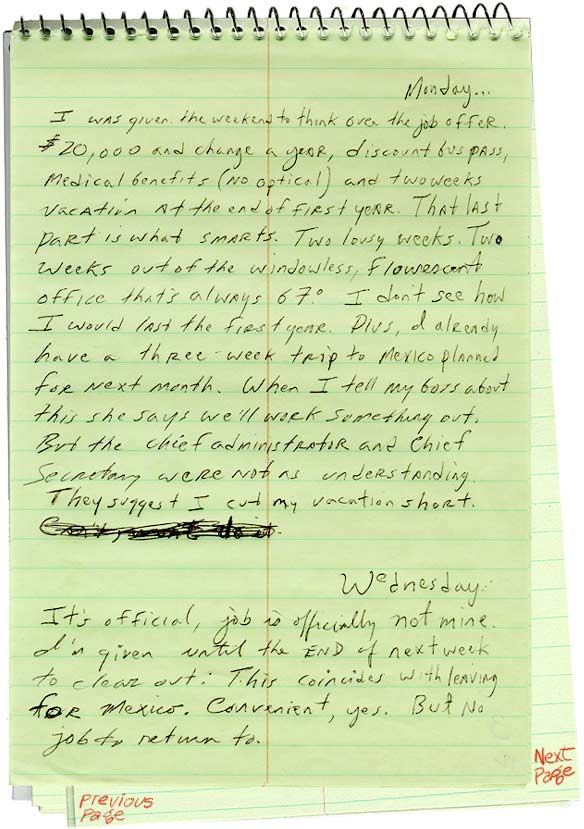 Monday...
I was given the weekend to think over the job offer.
$20,000 and change a year, discount bus pass,
Medical benefits (no optical) and two weeks
vacation at the end of first year. That last
part is what smarts. Two lousy weeks. Two
weeks out of the windowless, flourescent
office that's always 67°. I don't see how
I would last the first year. Plus, I already
have a three-week trip to Mexico planned
for next month. When I tell my boss about
this she says we'll work something out.
But the chief administrator and Chief
Secretary were not as understanding.
They suggest I cut my vacation short.
Can't, won't do it.
Wednesday.
It's official, job is officially not mine.
I'm given until the END of next week
to clear out. This coincides with leaving
for Mexico. Convenient, yes. But no
job to return to.
Previous
Page
Next
Page